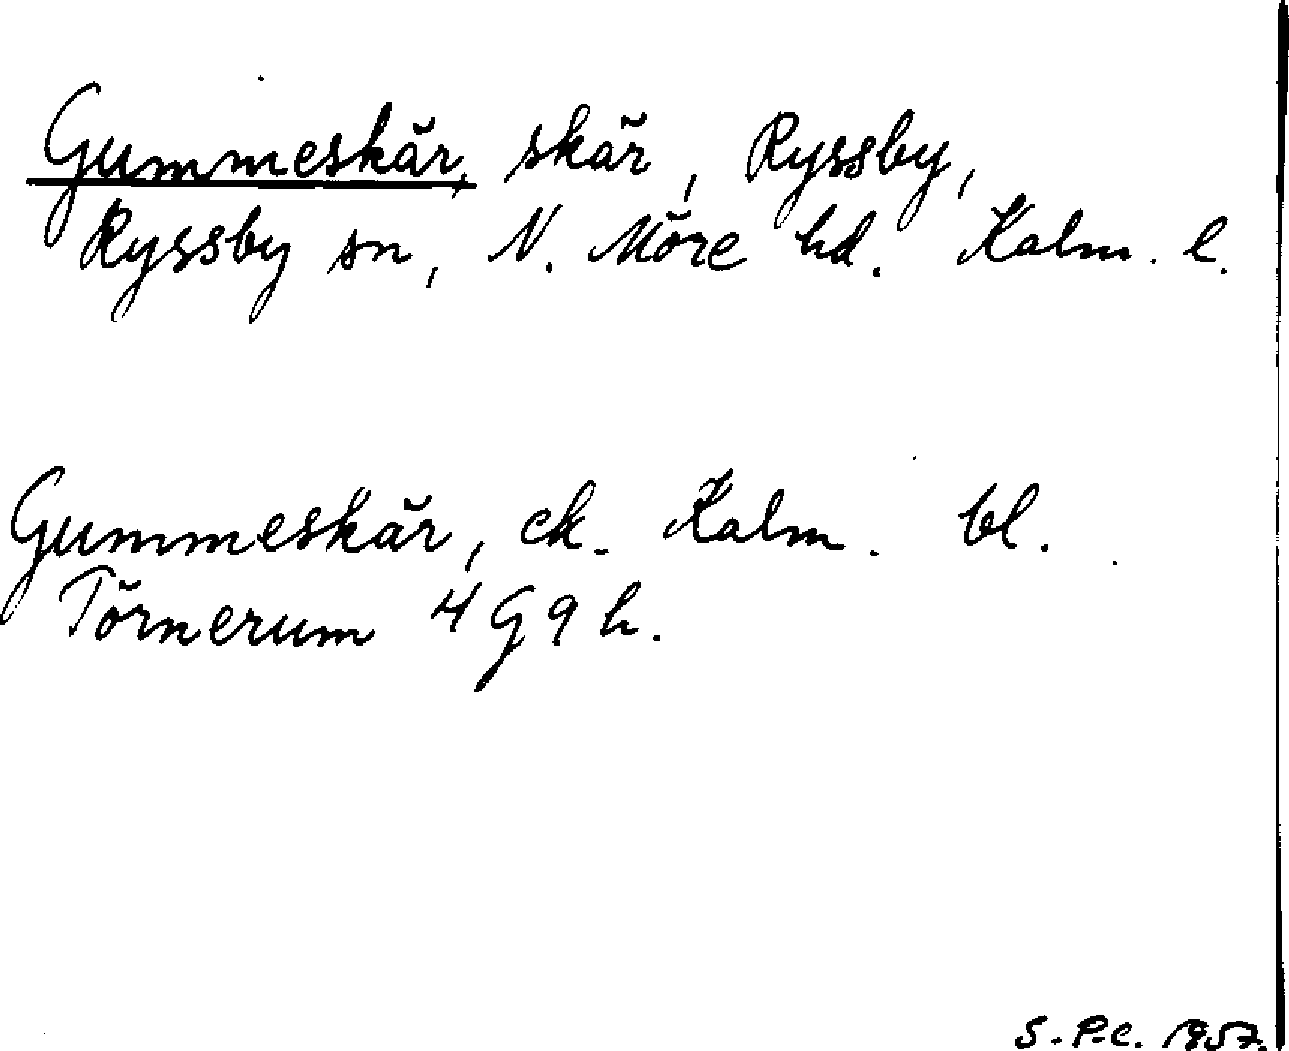 Gummeskär, skär, Ryssby,
Ryssby sn, N. Möre hd. Kalm. l.
Gummeskär, ek. Kalm. bl.
Törnerum 4G9h.
S.P.C. 1957.